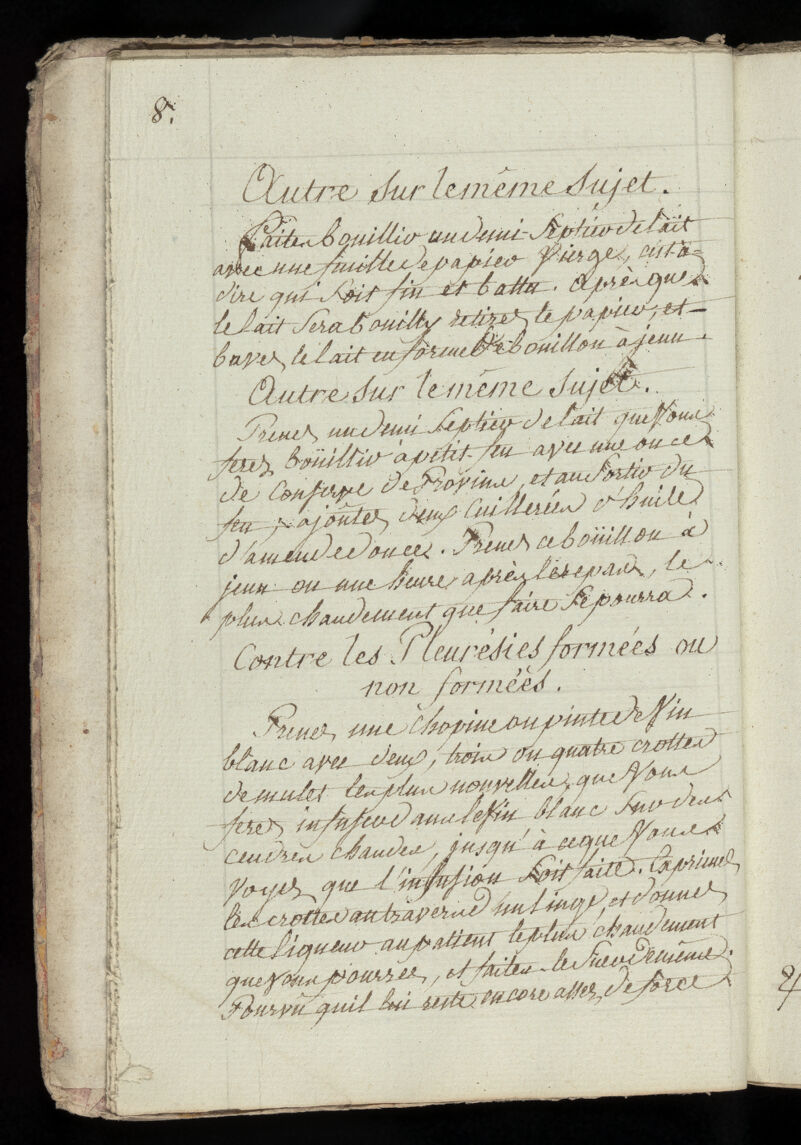 8.
Autre sur le même sujet.
Faites bouillir un demi-septier de lait
avec une feuille de papier vierge, c'est à
dire qui soit fin et battu. Après que
le lait sera bouilly retirez le papier, et
buvez le lait en forme de bouillon à jeun.
Autre sur le même sujet.
Prenez un demi septier de lait que vous
ferez boüillir à petit feu avec une once
de conserve de Provins, et au sortir du
feu, ajoûtez deux cuillerées d'huile
d'amende douce. Prenez ce boüillon à
jeun ou une heure après les repas, le
plus chaudement que faire se pourra.
Contre les Pleurésies formées ou
non formées.
Prenez une chopine ou pinte de vin
blanc avec deux, trois ou quatre crottes
de mulet les plus nouvelles, que vous
ferez infuser dans le vin blanc sur des
cendres chaudes, jusqu'à ce que vous
voyez que l'infusion soit faite. Exprimez
les crottes au travers d'un linge, et donnez
cette liqueur au patient le plus chaudement
que vous pourrez, et faites-le suer de même.
Pourvû qu'il lui reste encore assez de force